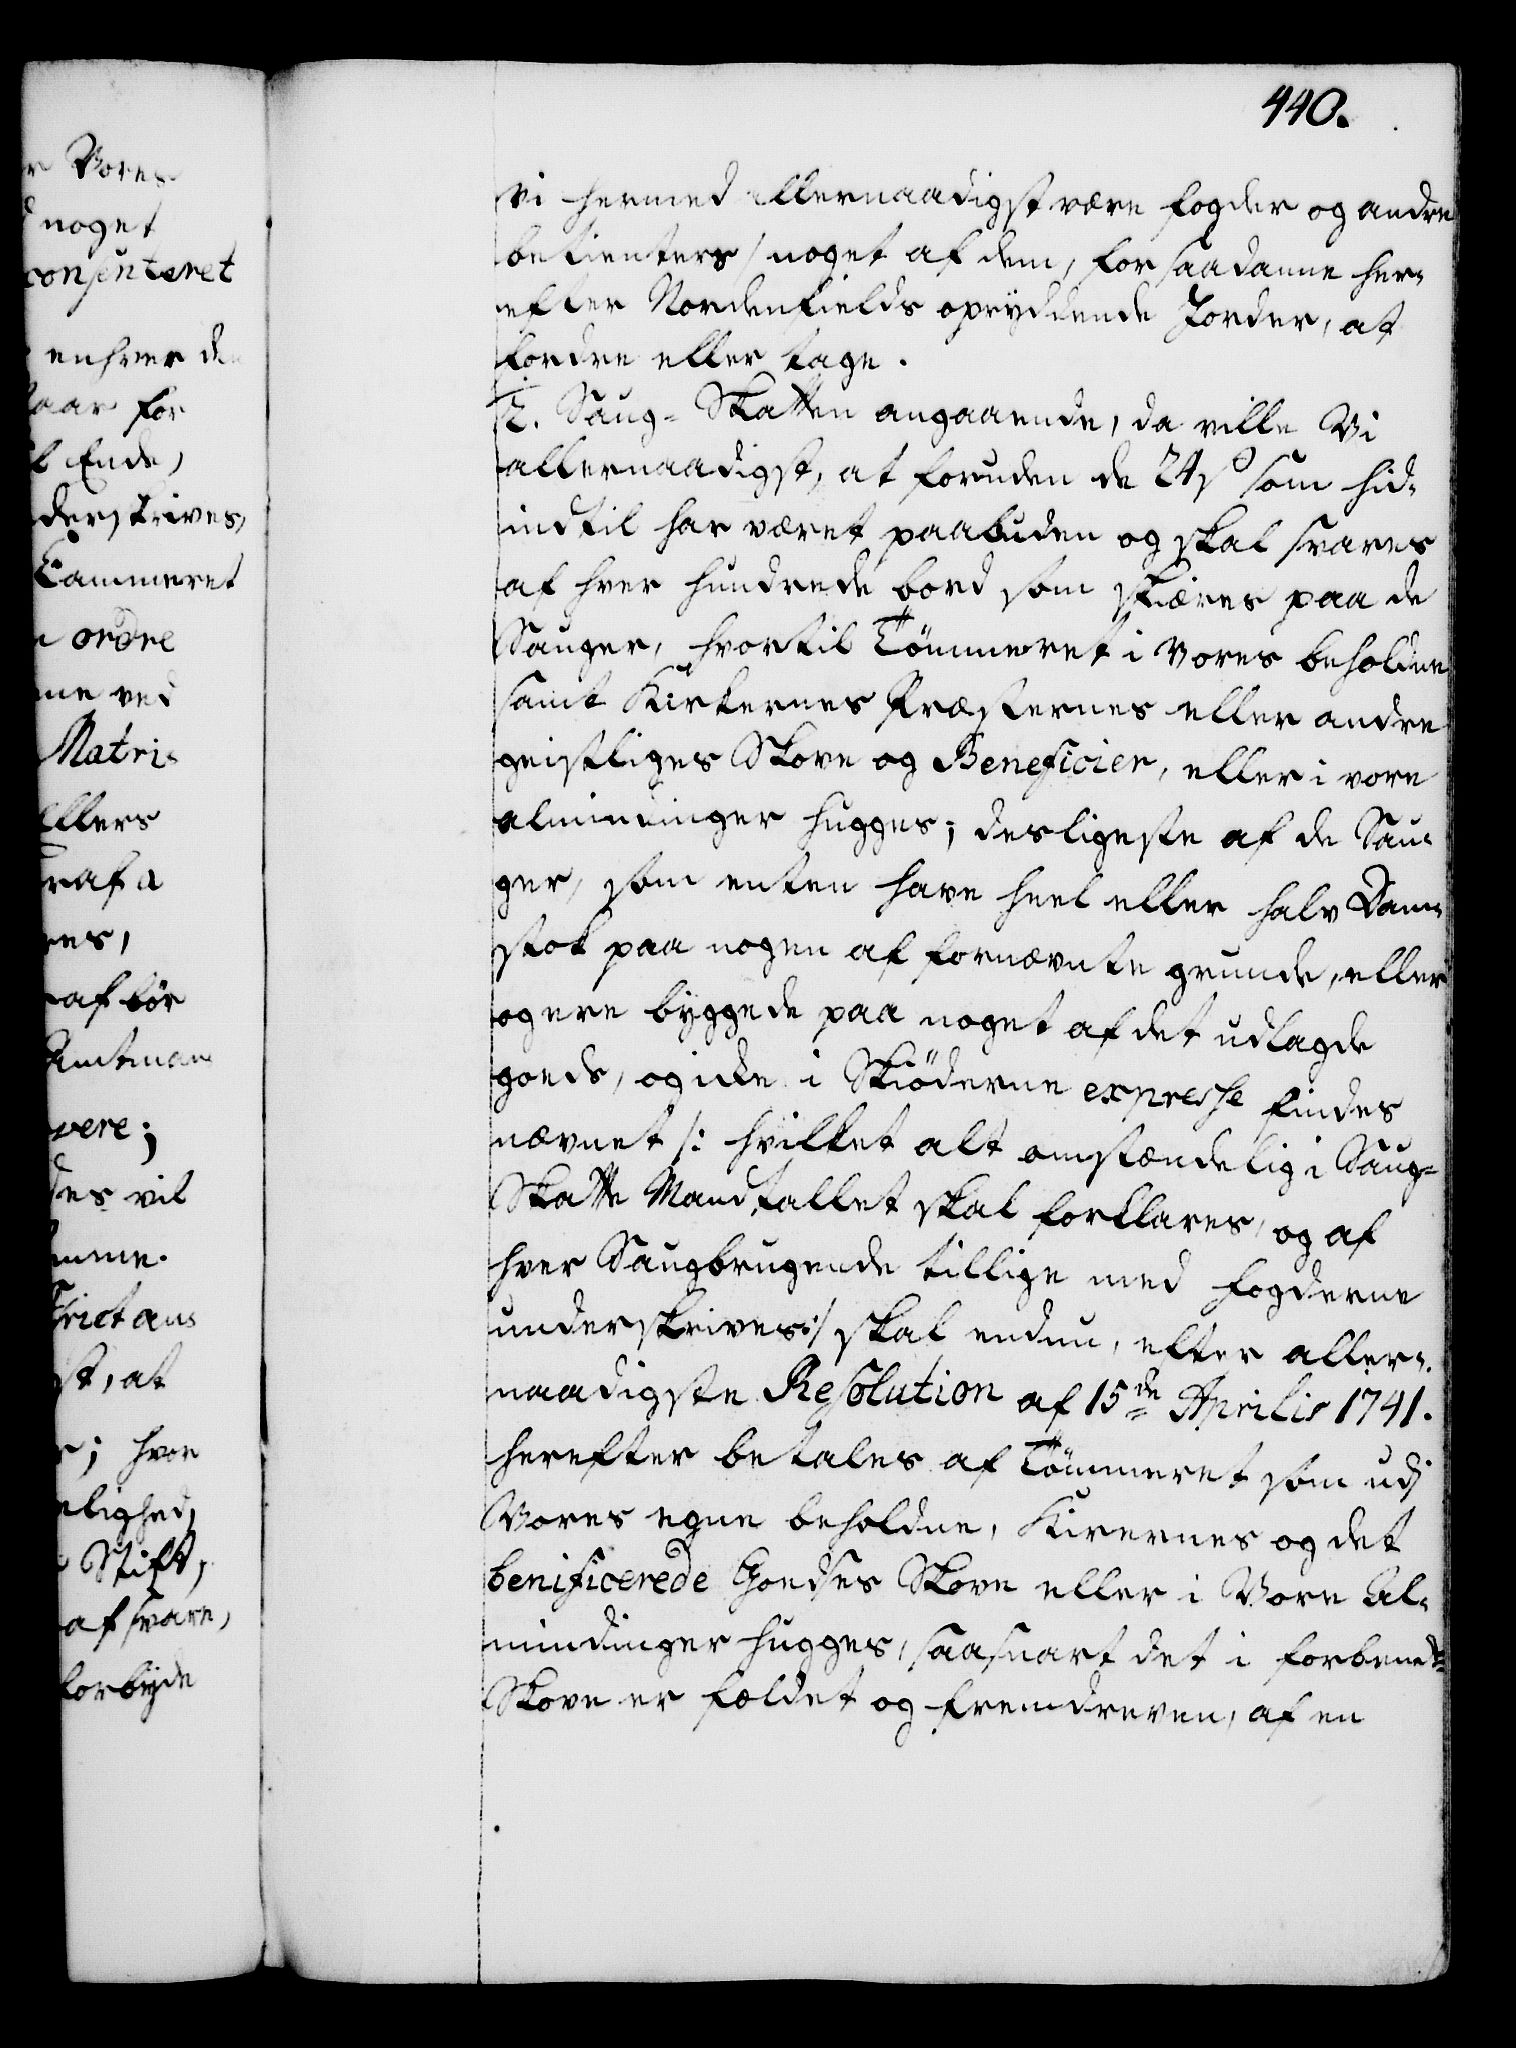 440.
r Vores
noget
consenteret
enhver de
aar for
l Ende,
derskrives,
Cammeret
ordre
me ved
Matri-
ellers
raf a
res,
raf bör
Amtman
vere;
des vil
mme.
trictaus
st, at
r; hvor
elighed,
Stift,
af svare,
forbyde
Vi hermed allernaadigst være fogder og andre
betienters, noget af dem, for saadanne her-
efter Nordenfields opryddende Jorder, at
fordre eller tage.
2. Saug-Skatten angaaende, da ville Vi
allernaadigst, at foruden de 24 s som hid-
indtil har været paabuden og skal svares
af hver hundrede bord som skiæres paa de
Sauger, hvortil Tömmeret i Vores beholdne
samt Kirkernes Præsternes eller andre
geistliges Skove og Beneficier, eller i vore
almindinger hugges; desligeste af de Sau-
ger, som enten have heel eller halv Dam-
stok paa nogen af fornævnte grunde, eller
og ere byggede paa noget af det udlagde
goeds, og icke i Skiöderne expresse findes
nævnet /: hvilket alt omstændelig i Saug-
Skatte Mandtallet skal forklares, og af
hver Saugbrugende tillige med fogderne
underskrives :/ skal endnu, efter aller-
naadigste Resolution af 15de Aprilis 1741.
herefter betales af Tömmeret som udj
Vores egne beholdne, Kirkernes og det
benificerede Goedses Skove eller i Vore Al-
mindinger hugges, saasnart det i forbemte
Skove er fældet og fremdreven, af en